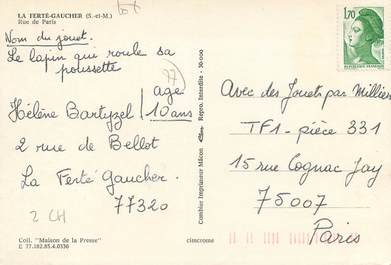 LA FERTÉ-GAUCHER (S.-et-M.)
Rue de Paris
Nom du jouet.
Le lapin qui roule sa
poussette
77
Hélène Bartyzel / age 10 ans
2 rue de Bellot
La Ferté Gaucher.
77320
2 CH
Coll. "Maison de la Presse"
E 77.182.85.4.0336
cimcrome
Combier Imprimeur Mâcon
Repro. Interdite - 30-000
1,70
Avec des Jouets par Millier
TF1 - pièce 331
15 rue Cognac Jay
75007
Paris